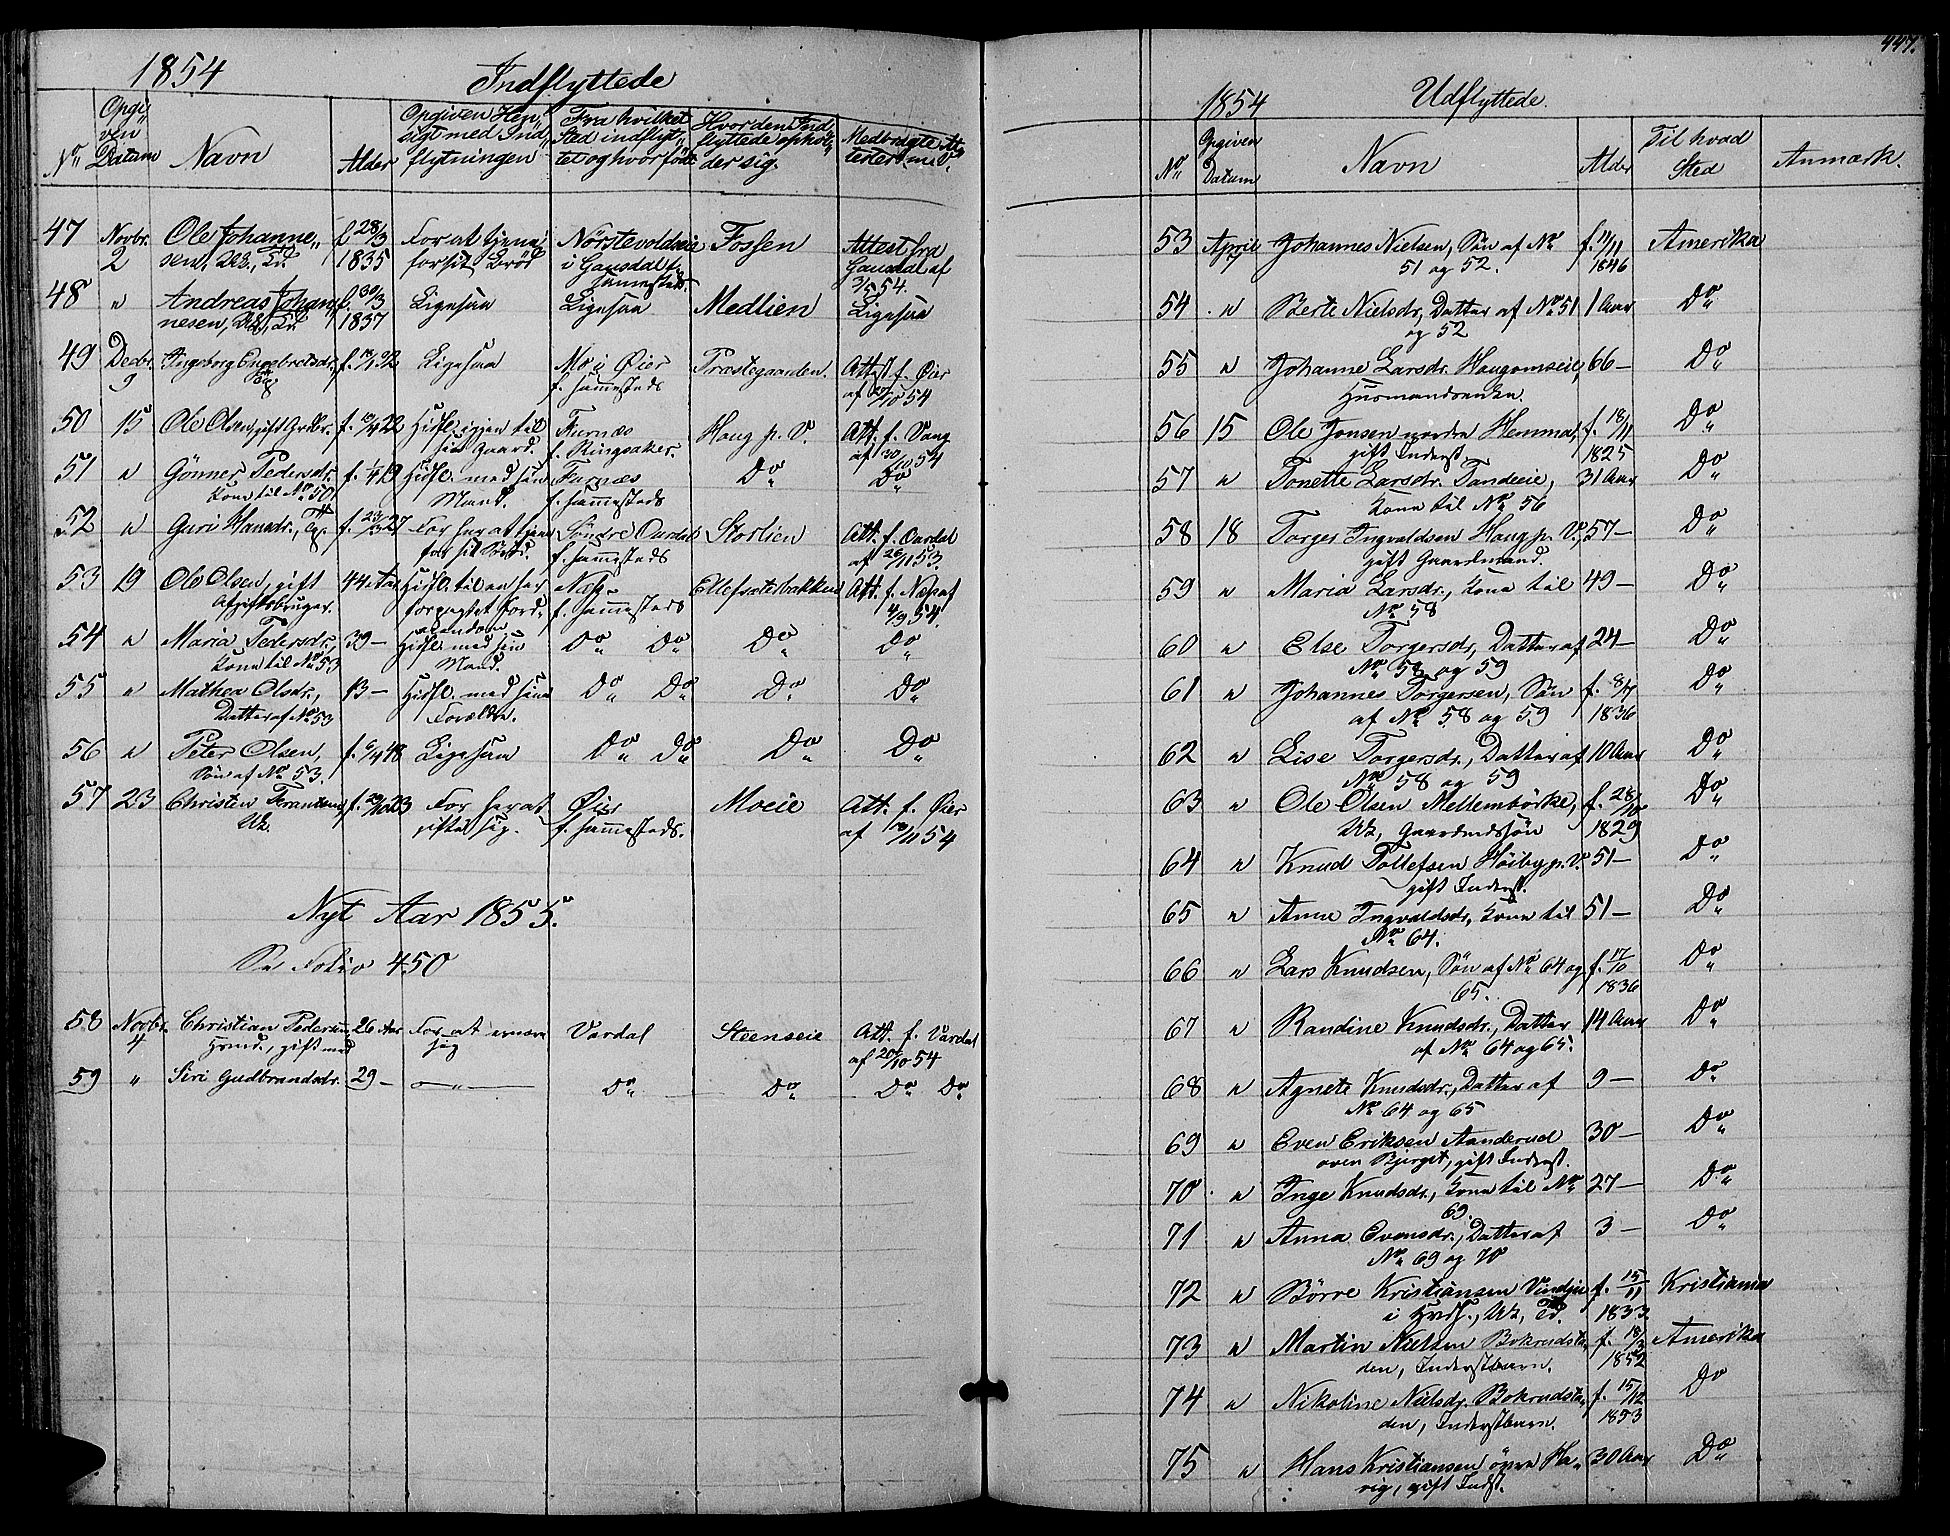 1854
Indflyttede
No
Opgiven Datum
Navn
Alder
Opgiven Hensigt med Indflytningen
Fra hvilket Sted indflyttet og hvor født
Hvor den Indflyttede opholder sig.
Medbragte Attester m. V.
47 Novbr. 2 Ole Johannesen, f. 28/3 1835 For at tjene for sit Brød i Gausdal f. sammesteds Fossen Attest fra Gausdal af 54.
48 " Andreas Johannesen, f. 30/3 1837 Ligesaa Ligesaa Medlien Ligesaa
49 Decbr. 9 Ingeborg Engebretsdr. Ligesaa Mo i Øier f. sammesteds Præstegaarden. Attest f. Øier af 54
50 15 Ole Olsen, gift Hidfl. igjen til sin Gaard. Furnæs f. Ringsaker. Haug p. V. Att. f. Vang af 30/10 54
51 " Pedersdr. Kone til No 50 Hidfl. med sin Mand. Furnæs f. sammesteds Do Do
52 " Guri Hansdr., For her at tjene for sit Brød. Søndre Ourdal f. sammesteds Storlien Att. f. Ourdal af 26/11 53.
53 19 Ole Olsen, gift Afgiftsbruger. 44 Aar Hidfl. til en her forpagtet Jordeiendom Næs f. sammesteds Att. f. Næs af 4/9 54.
54 " Maria Pedersdr., Kone til No 53 39 – Hidfl. med sin Mand. Do Do Do Do
55 " Mathea Olsdr., Datter af No 53 13 – Hidfl. med sine Forældre. Do Do Do Do
56 " Peter Olsen, Søn af No 53. Ligesaa Do Do Do Do
57 23 Christen For her at gifte sig. Øier f. sammesteds. Moeie Att. f. Øier af 54
Nyt Aar 1855.
Se Folio 450
58 Novbr. 4 Christian Pedersen, gift med 26 Aar For at ernære sig Vardal Steenseie Att. f. Vardal af 20/10 54
59 " Siri Gudbrandsdr. 29 – — " — Do Do Do Do
447.
1854
Udflyttede.
No
Opgiven Datum
Navn
Alder
Til hvad Sted
Anmærk.
53 April Johannes Nielsen, Søn af No 51 og 52. f. 11/11 1846 Amerika
54 " Berte Nielsdr, Datter af No 51 og 52 1 Aar Do
55 " Johanne Larsdr. Haugomseie, Husmandsenke. 66 – Do
56 15 Ole Jonsen nordre Hemma, gift Inderst f. 18/11 1825 Do
57 " Tonette Larsdr. Kone til No 56 31 Aar Do
58 18 Torger Ingvaldsen Haug p. V., gift Gaardmand. 57 – Do
59 " Maria Larsdr., Kone til No 58 49 – Do
60 " Else Torgersdr, Datter af No 58 og 59 24 – Do
61 " Johannes Torgersen, Søn af No 58 og 59 f. 8/7 1836 Do
62 " Lise Torgersdr., Datter af No 58 og 59 10 Aar Do
63 " Ole Olsen Mellembørke, Uk., Gaardmdssøn f. 28/10 1829 Do
64 " Knud Tollefsen Høiby p. V. gift Inderst. 51 – Do
65 " Anne Ingvaldsdr., Kone til No 64. 51 – Do
66 " Lars Knudsen, Søn af No 64 og 65. f. 17/10 1836 Do
67 " Randine Knudsdr., Datter af No 64 og 65. 14 Aar Do
68 " Agnete Knudsdr., Datter af No 64 og 65 9 – Do
69 " Even Eriksen Aanderud oven Bjerget, gift Inderst. 30 – Do
70 " Inge Knudsdr., Kone til No 69. 27 – Do
71 " Anna Evensdr., Datter af No 69 og 70 3 – Do
72 " Børre Kristiansen i f. 15/11 1833 Kristiania
73 " Martin Nielsen Bokrudstaden, Inderstbarn. f. 18/3 1852 Amerika
74 " Nikoline Nielsdr. Bokrudstaden, Inderstbarn. f. 15/12 1853 Do
75 " Hans Kristiansen øvre Harig, gift Indst. 30 Aar Do